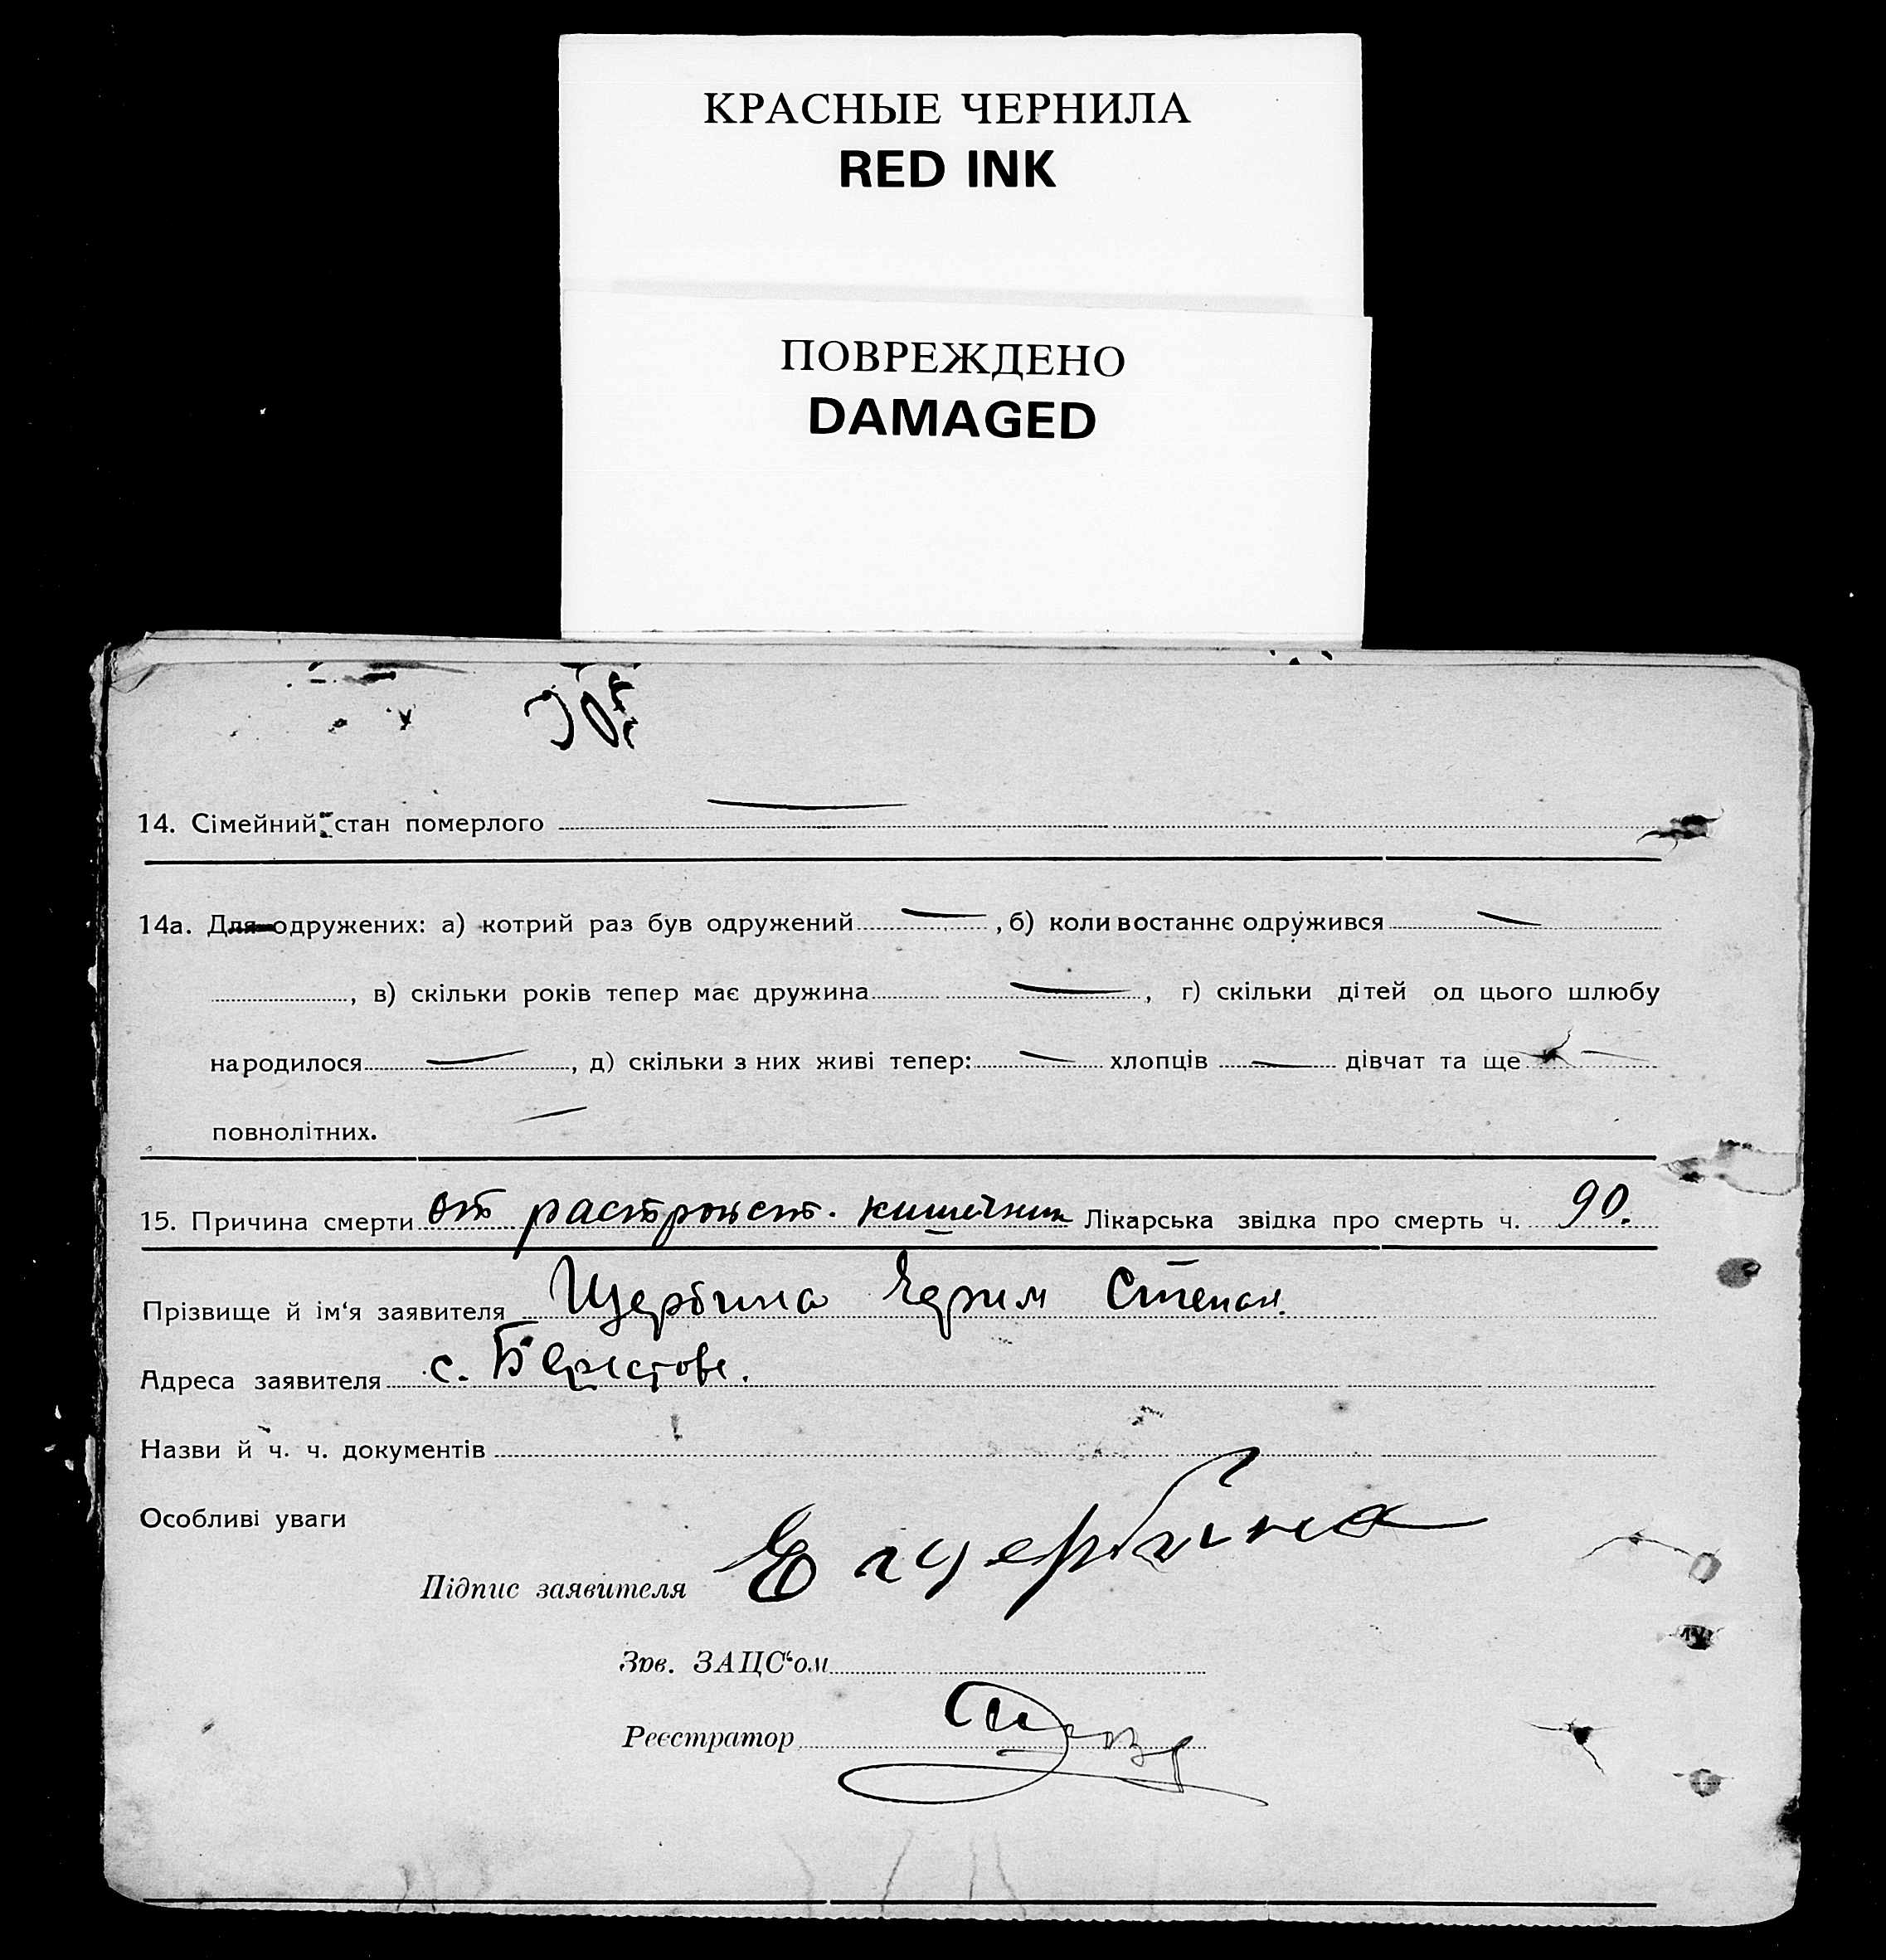 КРАСНЫЕ ЧЕРНИЛА
RED INK
ПОВРЕЖДЕНО
DAMAGED
14. Сімейний стан померлого
14а. Для одружених: а) котрий раз був одружений , б) коли востаннє одружився
, в) скільки років тепер має дружина , г) скільки дітей од цього шлюбу
народилося , д) скільки з них живі тепер: хлопців дівчат та ще
повнолітних.
15. Причина смерти от растройст. кишечник Лікарська звідка про смерть ч. 90.
Прізвище й ім'я заявителя Щербина Ефим Степан.
Адреса заявителя с. Берестове.
Назви й ч. ч. документів
Особливі уваги
Підпис заявителя Е Щербина
Зав. ЗАЦС'ом
Реєстратор